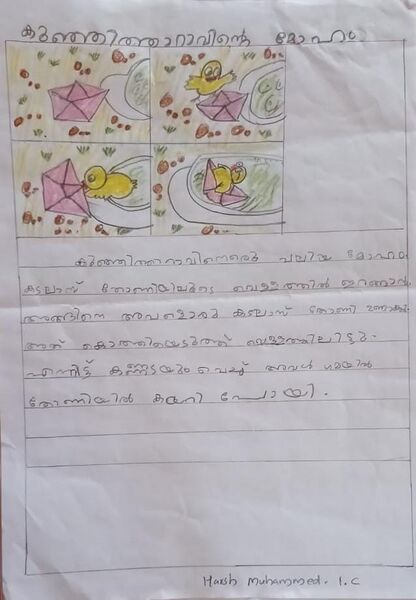 കുഞ്ഞിത്താറാവിന്റെ മോഹം
കുഞ്ഞിത്താറാവിനൊരു വലിയ മോഹം
കടലാസ് തോണിയിലൂടെ വെള്ളത്തിൽ ഇറങ്ങാൻ.
അങ്ങിനെ അവളൊരു കടലാസ് തോണി
അത് കൊത്തിയെടുത്ത് വെള്ളത്തിലിട്ടു.
എന്നിട്ട് കണ്ണടയും വെച്ച് അവൾ ഗമയിൽ
തോണിയിൽ കയറി പോയി.
Harsh Muhammed. 1.C